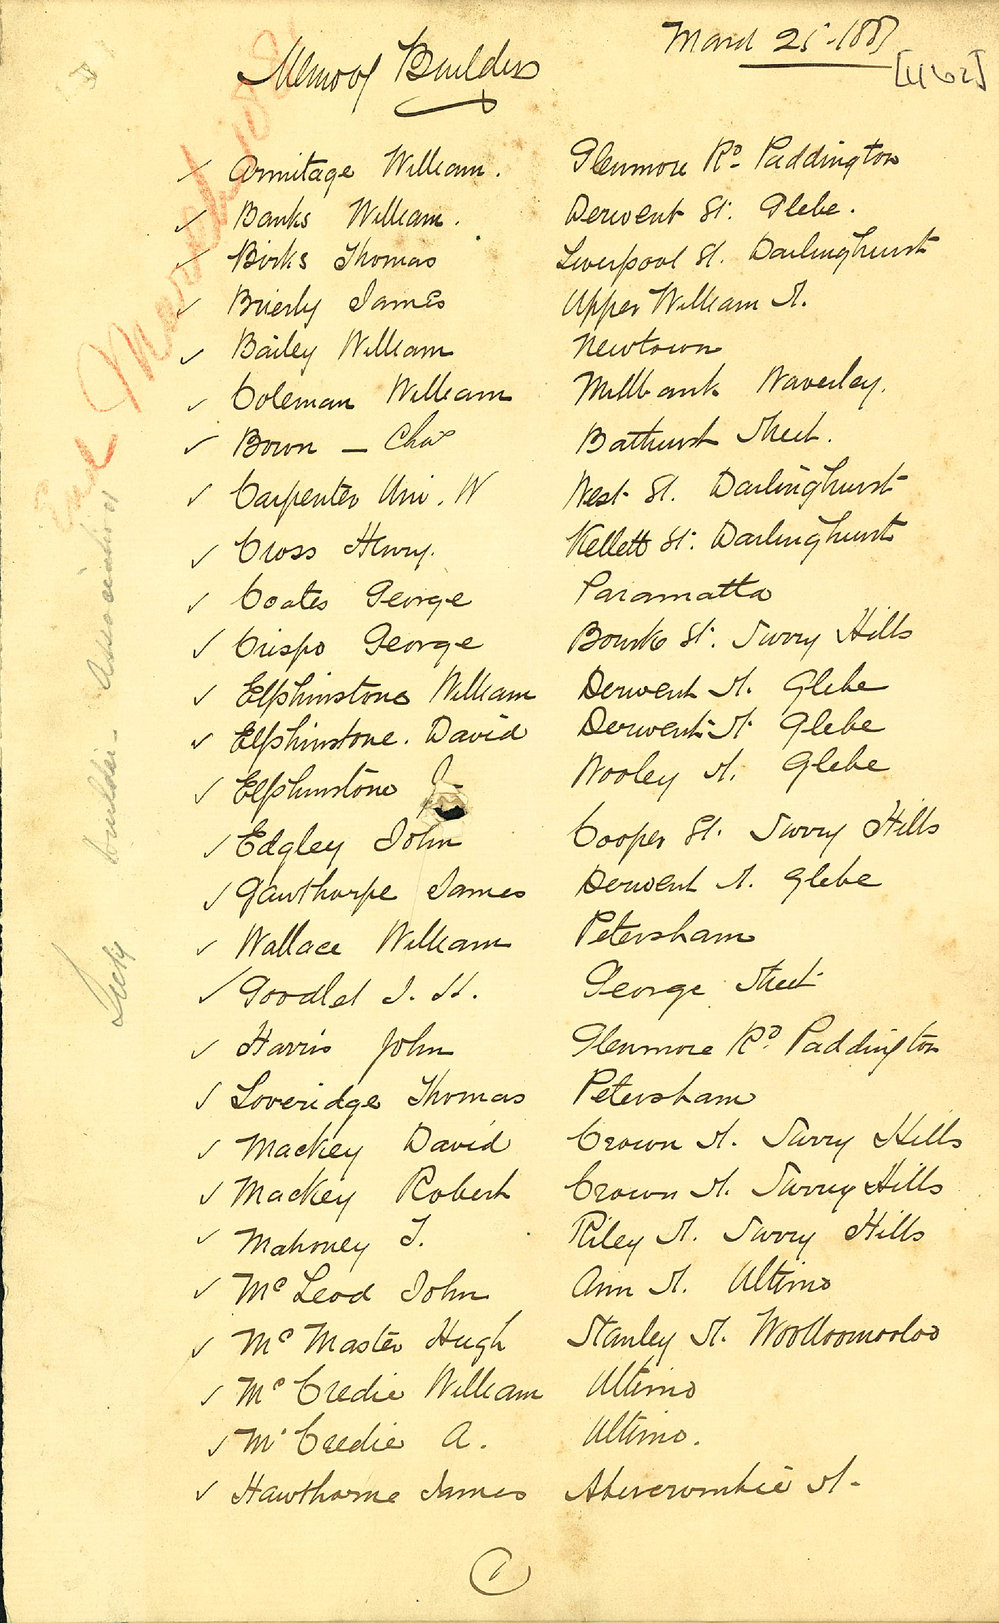 Memo of Builders
March 25 - 1887
[462]
✓ Armitage William. Glenmore Rd. Paddington
✓ Banks William. Derwent St. Glebe.
✓ Birks Thomas Liverpool St. Darlinghurst
✓ Brierly James Upper William St.
✓ Bailey William Newtown
✓ Coleman William Millbank Waverley.
✓ Bown — Chas Bathurst Street.
✓ Carpenter Wm. W West St. Darlinghurst
✓ Cross Henry. Kellett St. Darlinghurst
✓ Coates George Paramatta
✓ Crispo George Bourke St. Surry Hills
✓ Elphinstone William Derwent St. Glebe
✓ Elphinstone. David Derwent St Glebe
✓ Elphinstone J Wooley St. Glebe
✓ Edgley John Cooper St. Surry Hills
✓ Gawthorpe James Derwent St. Glebe
✓ Wallace William Petersham
✓ Goodlet J. H. George Street
✓ Harris John Glenmore Rd. Paddington
✓ Loveridge Thomas Petersham
✓ Mackey David Crown St. Surry Hills
✓ Mackey Robert Crown St. Surrey Hills
✓ Mahoney T. Riley St. Surry Hills
✓ Mc Leod John Ann St. Ultimo
✓ Mc Master Hugh Stanley St. Woolloomooloo
✓ Mc Credie William Ultimo
✓ Mc Credie A. Ultimo.
✓ Hawthorne James Abercrombie St.
1
builders Association
March